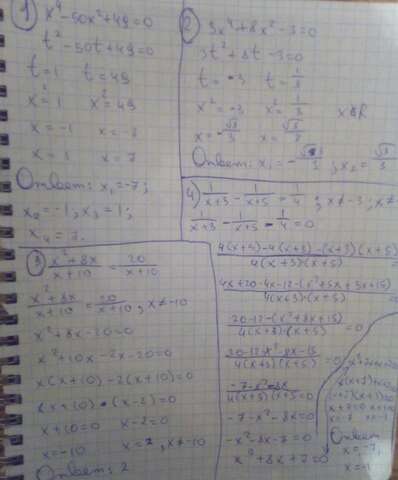 1) x⁴-50x²+49=0
t²-50t+49=0
t=1 t=49
x²=1 x²=49
x=-1 x=-7
x=1 x=7
Ответ: x₁=-7;
x₂=-1, x₃=1;
x₄=7.
2) 3x⁴+8x²-3=0
3t²+8t-3=0
t=-3 t=1/3
x²=-3 x²=1/3
x=-√3/3 x=√3/3
Ответ: x₁=-√3/3, x₂=√3/3
3) x²+8x/x+10=20/x+10
x²+8x/x+10=20/x+10, x≠-10
x²+8x-20=0
x²+10x-2x-20=0
x(x+10)-2(x+10)=0
(x+10)·(x-2)=0
x+10=0 x-2=0
x=-10 x=2, x≠-10
Ответ: 2
4) 1/x+3-1/x+5=1/4; x≠-3; x≠
1/x+3-1/x+5-1/4=0
4(x+5)-4(x+3)-(x+3)(x+5)/4(x+3)(x+5)=
4x+20-4x-12-(x²+5x+3x+15)/4(x+3)(x+5)=0
20-12-(x²+8x+15)/4(x+3)(x+5)=0
20-12-x²-8x-15/4(x+3)(x+5)=0
-7-x²-8x/4(x+3)(x+5)=0
-7-x²-8x=0
-x²-8x-7=0
x²+8x+7=0
x+7=0 x+1=0
x=-7 x=-1
Ответ:
x=-7,
x=-1